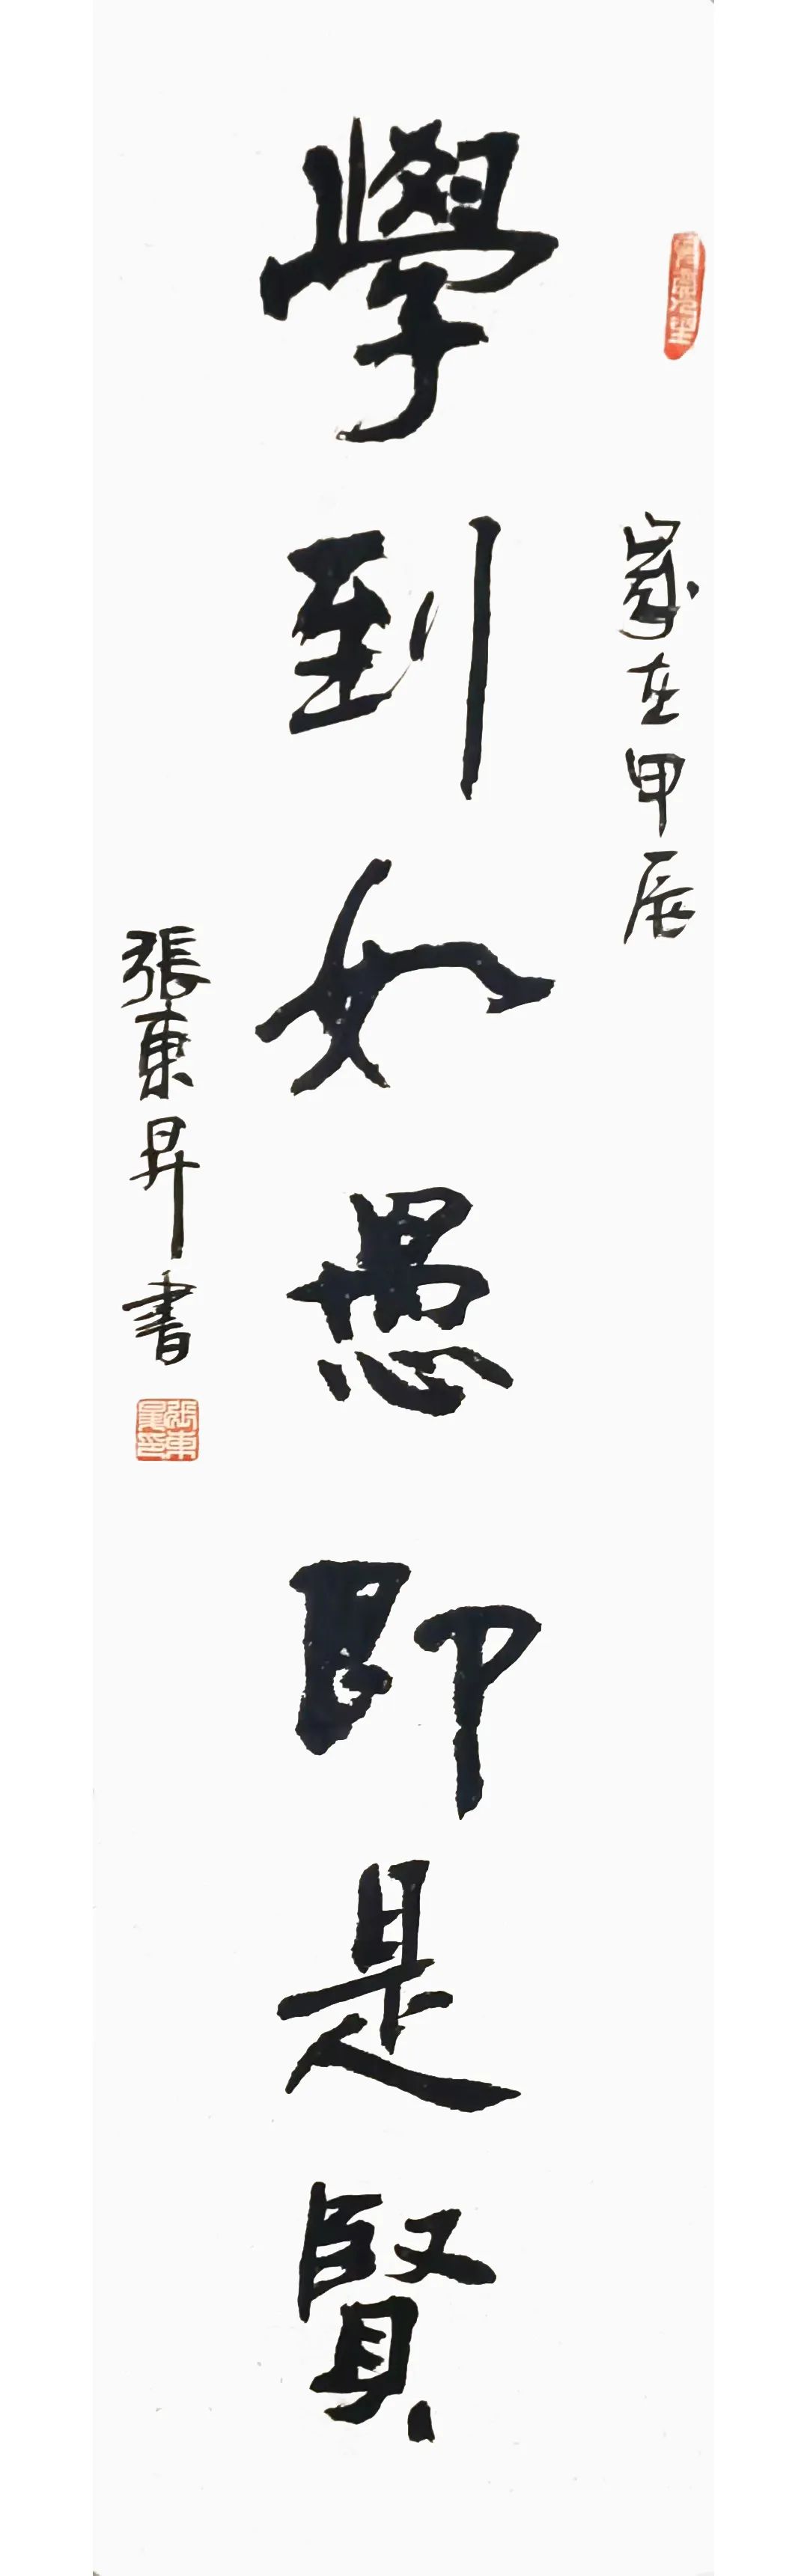 歲在甲辰
學到如愚即是賢
張東昇書